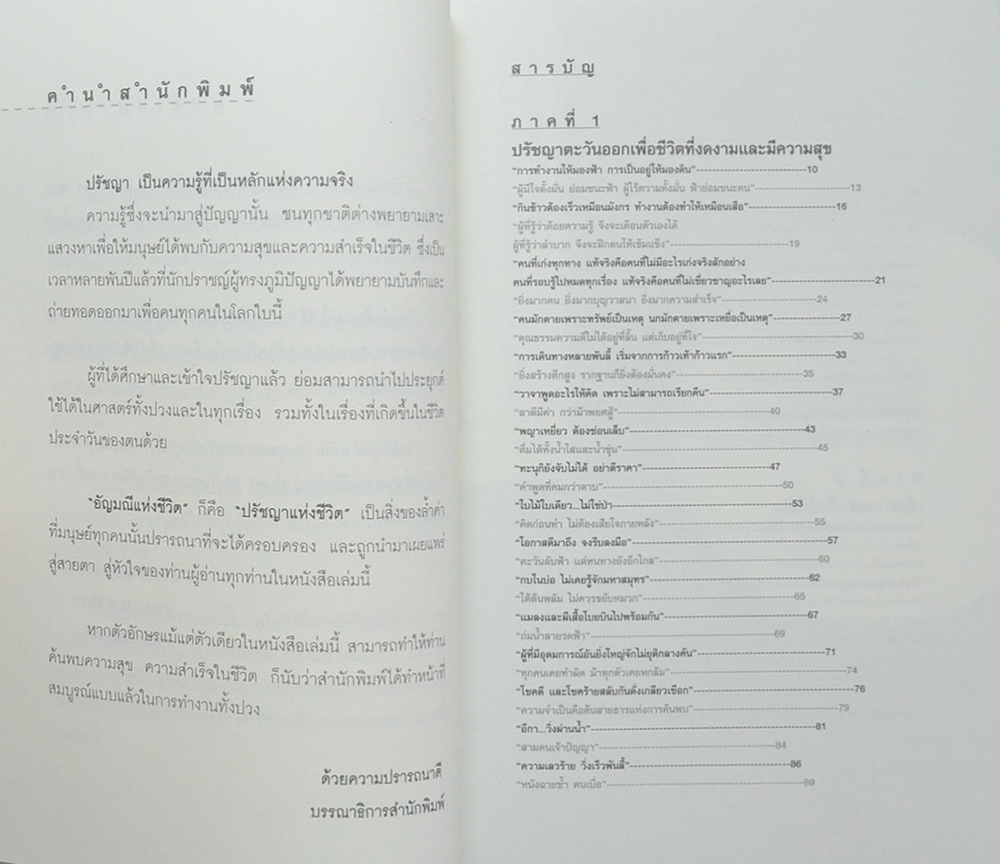 คำนำสำนักพิมพ์
ปรัชญา เป็นความรู้ที่เป็นหลักแห่งความจริง
ความรู้ซึ่งจะนำมาสู่ปัญญานั้น ชนทุกชาติต่างพยายามเสาะ
แสวงหาเพื่อให้มนุษย์ได้พบกับความสุขและความสำเร็จในชีวิต ซึ่งเป็น
เวลาหลายพันปีแล้วที่นักปราชญ์ผู้ทรงภูมิปัญญาได้พยายามบันทึกและ
ถ่ายทอดออกมาเพื่อคนทุกคนในโลกใบนี้
ผู้ที่ได้ศึกษาและเข้าใจปรัชญาแล้ว ย่อมสามารถนำไปประยุกต์
ใช้ได้ในศาสตร์ทั้งปวงและในทุกเรื่อง รวมทั้งในเรื่องที่เกิดขึ้นในชีวิต
ประจำวันของตนด้วย
"อัญมณีแห่งชีวิต" ก็คือ "ปรัชญาแห่งชีวิต" เป็นสิ่งของล้ำค่า
ที่มนุษย์ทุกคนนั้นปรารถนาที่จะได้ครอบครอง และถูกนำมาเผยแพร่
สู่สายตา สู่หัวใจของท่านผู้อ่านทุกท่านในหนังสือเล่มนี้
หากตัวอักษรแม้แต่ตัวเดียวในหนังสือเล่มนี้ สามารถทำให้ท่าน
ค้นพบความสุข ความสำเร็จในชีวิต ก็นับว่าสำนักพิมพ์ได้ทำหน้าที่
สมบูรณ์แบบแล้วในการทำงานทั้งปวง
ด้วยความปรารถนาดี
บรรณาธิการสำนักพิมพ์
สารบัญ
ภาคที่ 1
ปรัชญาตะวันออกเพื่อชีวิตที่งดงามและมีความสุข
"การทำงานให้มองฟ้า การเป็นอยู่ให้มองดิน"----------10
"ผู้มีใจตั้งมั่น ย่อมชนะฟ้า ผู้ไร้ความตั้งมั่น ฟ้าย่อมชนะคน"----------13
"กินข้าวต้องเร็วเหมือนมังกร ทำงานต้องทำให้เหมือนเสือ"----------16
"ผู้ที่รู้ว่าด้อยความรู้ จึงจะเตือนตัวเองได้
ผู้ที่รู้ว่าลำบาก จึงจะฝึกตนให้เข้มแข็ง"----------19
"คนที่เก่งทุกทาง แท้จริงคือคนที่ไม่มีอะไรเก่งจริงสักอย่าง
คนที่รอบรู้ไปหมดทุกเรื่อง แท้จริงคือคนที่ไม่เชี่ยวชาญอะไรเลย"----------21
"ยิ่งมากคน ยิ่งมากบุญวาสนา ยิ่งมากความสำเร็จ"----------24
"คนมักตายเพราะทรัพย์เป็นเหตุ นกมักตายเพราะเหยื่อเป็นเหตุ"----------27
"คุณธรรมความดีไม่ได้อยู่ที่ลิ้น แต่เก็บอยู่ที่ใจ"----------30
"การเดินทางหลายพันลี้ เริ่มจากการก้าวเท้าก้าวแรก"----------33
"ยิ่งสร้างตึกสูง รากฐานก็ยิ่งต้องมั่นคง"----------35
"วาจาพูดอะไรให้คิด เพราะไม่สามารถเรียกคืน"----------37
"ลาดีมีค่า กว่าม้าพยศสู้"----------40
"พญาเหยี่ยว ต้องซ่อนเล็บ"----------43
"ดื่มได้ทั้งน้ำใสและน้ำขุ่น"----------45
"ทะนุกิยังจับไม่ได้ อย่าตีราคา"----------47
"คำพูดที่คมกว่าดาบ"----------50
"ใบไม้ใบเดียว...ไม่ใช่ป่า"----------53
"คิดก่อนทำ ไม่ต้องเสียใจภายหลัง"----------55
"โอกาสดีมาถึง จงรีบลงมือ"----------57
"ตะวันลับฟ้า แต่หนทางยังอีกไกล"----------60
"กบในบ่อ ไม่เคยรู้จักมหาสมุทร"----------62
"ใต้ต้นพลัม ไม่ควรขยับหมวก"----------65
"แมลงและผีเสื้อโบยบินไปพร้อมกัน"----------67
"ถ่มน้ำลายรดฟ้า"----------69
"ผู้ที่มีอุดมการณ์อันยิ่งใหญ่จักไม่ยุติกลางคัน"----------71
"ทุกคนเคยทำผิด ม้าทุกตัวเคยหกล้ม"----------74
"โชคดี และโชคร้ายสลับกันดั่งเกลียวเชือก"----------76
"ความจำเป็นคือต้นสายธารแห่งการค้นพบ"----------79
"อีกา...วิ่งผ่านน้ำ"----------81
"สามคนเจ้าปัญญา"----------84
"ความเลวร้าย วิ่งเร็วพันลี้"----------86
"หนังฉายซ้ำ คนเบื่อ"----------89